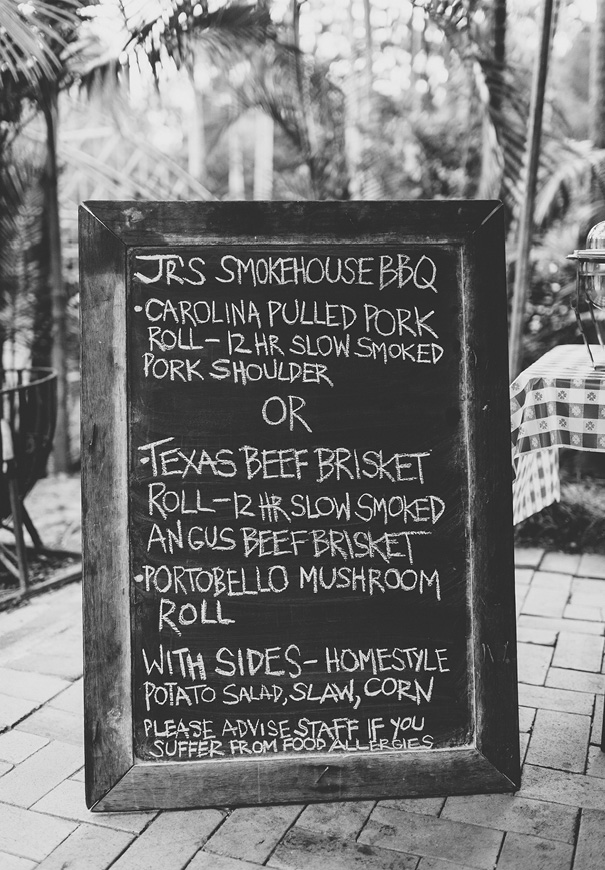 JR'S SMOKEHOUSE BBQ
• CAROLINA PULLED PORK
ROLL - 12 HR SLOW SMOKED
PORK SHOULDER
OR
• TEXAS BEEF BRISKET
ROLL - 12 HR SLOW SMOKED
ANGUS BEEF BRISKET
• PORTOBELLO MUSHROOM
ROLL
WITH SIDES - HOMESTYLE
POTATO SALAD, SLAW, CORN
PLEASE ADVISE STAFF IF YOU
SUFFER FROM FOOD ALLERGIES